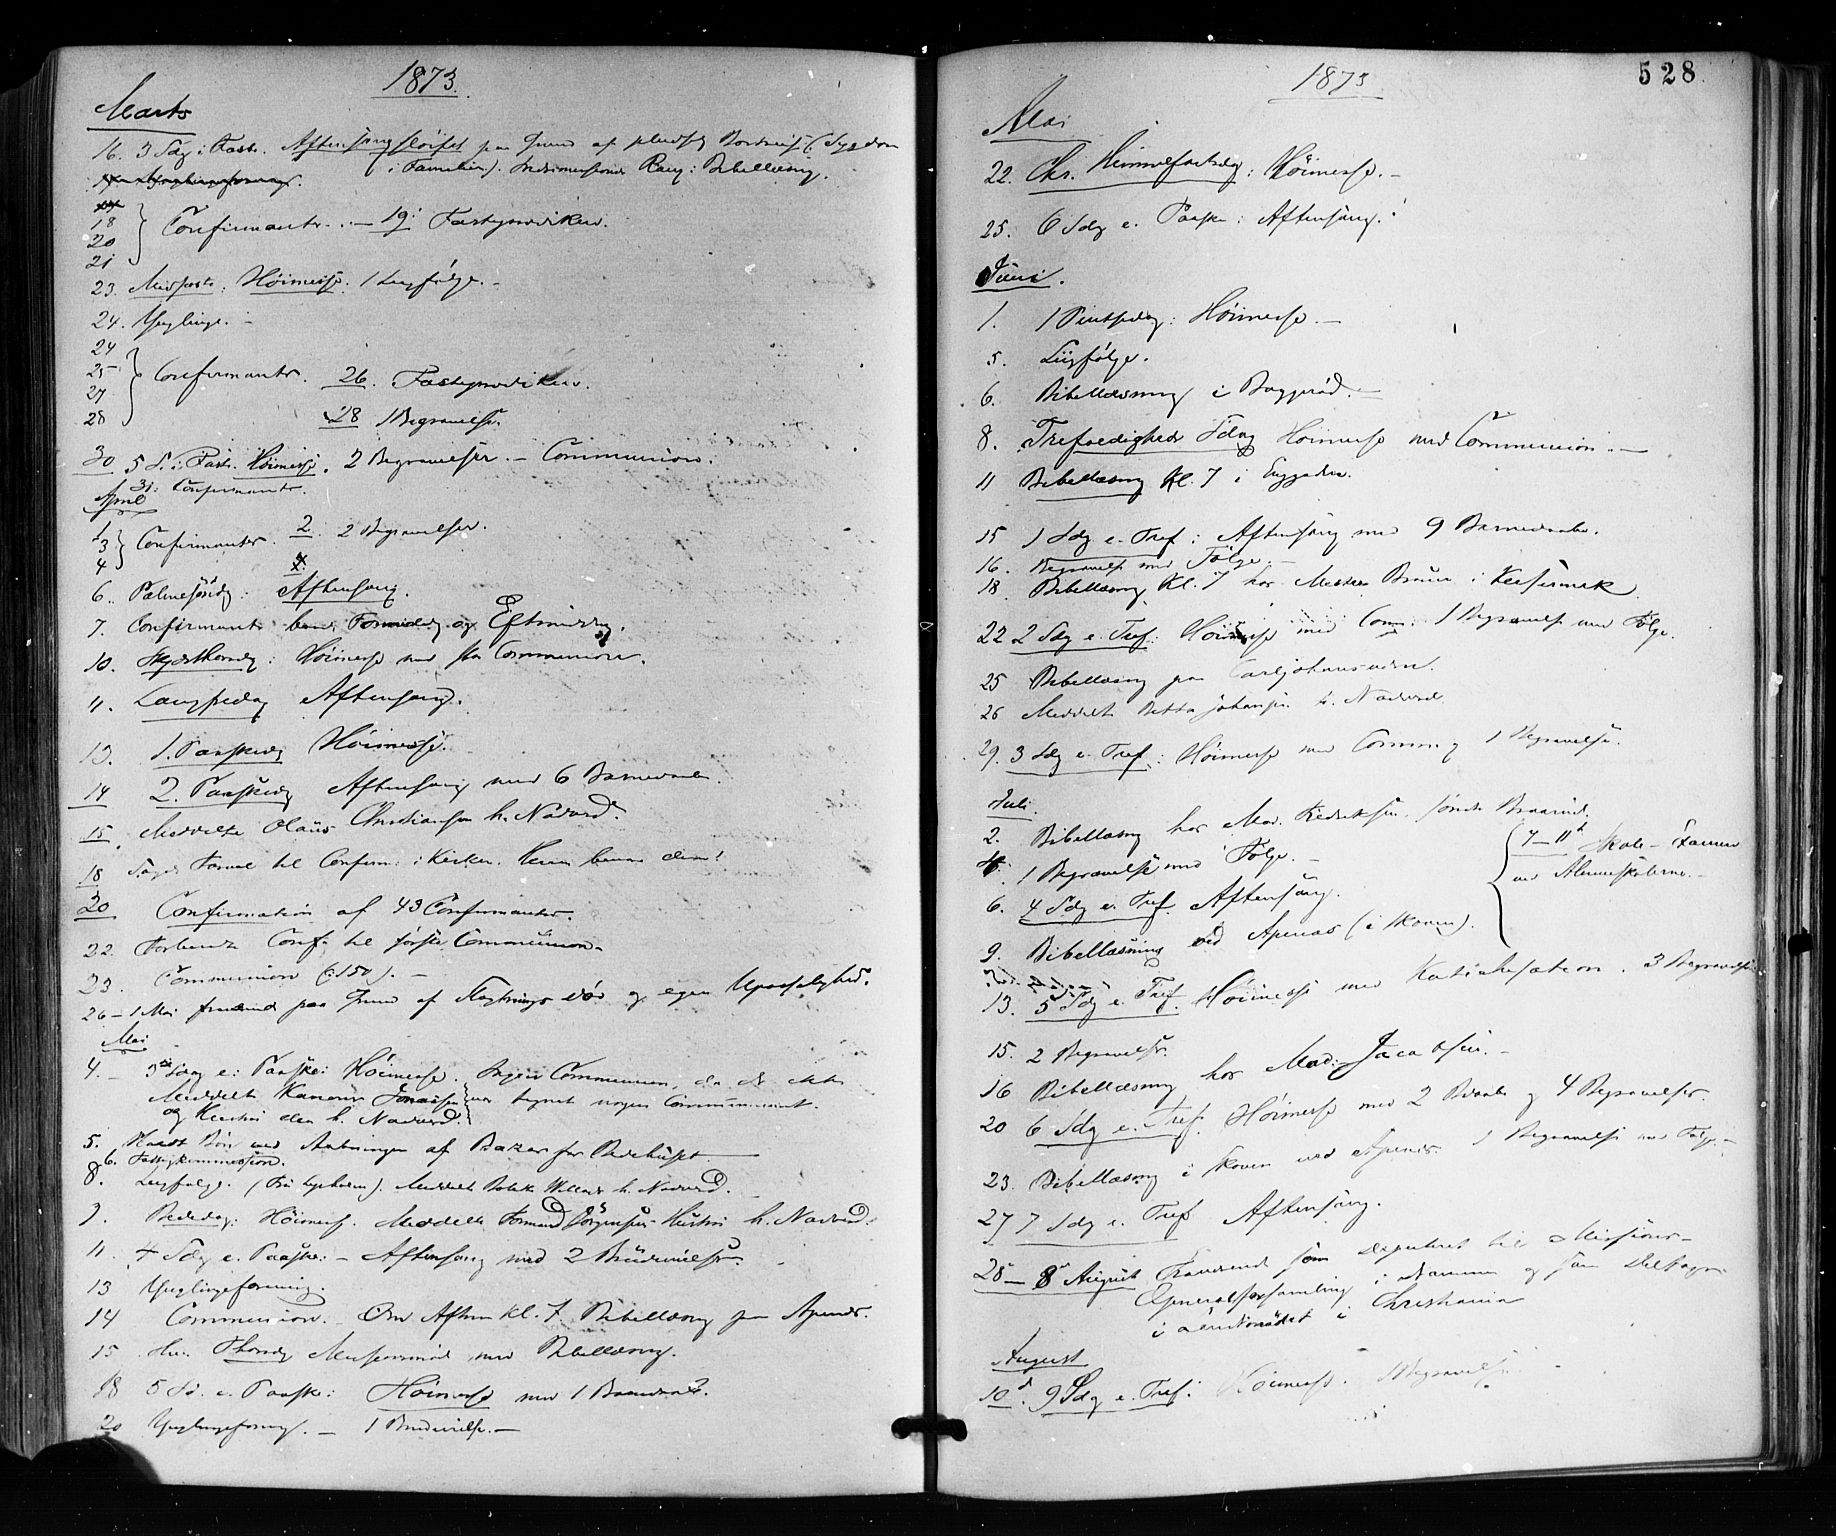 1873.
Marts
16. 3 Sdg i Faste. Aftensang sløifet paa Grund af pludselig (Sygdom
i Familien). Bibellæsning.
18
20 } Confirmanter. — 19: Fattigpraktiken.
21
23. Midfaste: Høimesse. 1 Liigfølge. —
24. Ynglinge. —
24
25 } Confirmanter. 26.
27
28 28 1 Begravelse.
30 5 S. i Faste. Høimesse. 2 Begravelser. — Communion.
31: Confirmanter.
April
1
3 } Confirmanter. 2. 2 Begravelser.
4
6. Palmesøndg: Aftensang.
7. Confirmanter Formiddag og Eftermiddag.
10. Skjærthorsdg: Høimesse med stor Communion.
11. Langfredag Aftensang.
13. 1. Paaskedg Høimesse.
14 2. Paaskedg Aftensang med 6 Barnedaab.
15 Meddelte Olaus Christiansen h. Nadverd.
18 til Confirm: i Kirken. Herren bevare dem!
20 Confirmation af 43 Confirmanter.
22. Forberedt Conf. til første Communion.
23. Communion (150). —
26 – 1 Mai fraværende paa Grund af Slegtnings Død og egen Upasselighed.
Mai
4. — 3die Sdg e: Paaske: Høimesse. Ingen Communion, da der ikke
Meddelte Jonassen } var tegnet nogen Communicant.
og Hustru den h. Nadverd. }
5. Holdt Bøn ved Aabningen af Bazar for Bedehuset.
6. Fattigkommission.
8. Liigfølge. Meddelte h. Nadverd.
9. Bededag: Høimesse. Meddelte Formand Jørgensens Hustru h. Nadverd.
11. 4 Sdg e. Paaske: — Aftensang med 2 Brudevielser.
13 Ynglingeforening.
14 Communion. — Om Aftenen Kl. 7. Bibellæsning paa Apenes.
15 Missionsmøde med Bibellæsning.
18 5 Sd. e. Paaske: Høimesse med 1 Barnedaab.
20 Ynglingeforening. — 1 Brudevielse. —
1873
528
Mai
22. Chr. Himmelfartsdg: Høimesse. —
25. 6 Sdg e. Paaske: Aftensang.
Juni.
1. 1 Pintsedag: Høimesse. —
5. Liigfølge.
6. Bibellæsning i Baggerød. —
8. Trefoldigheds Sdag Høimesse med Communion. —
11 Bibellæsning Kl. 7 i Enggaden.
15 1 Sdg e. Tref: Aftensang med 9 Barnedaab.
16. Begravelse med Følge. —
18 Bibellæsning Kl. 7 hos Bruun i Keisemark
22 2 Sdg e. Tref: Høimesse med Comm: 1 Begravelse med Følge.
25 Bibellæsning paa Carljohansværn.
26 Meddelt Johansen h. Nadverd.
29. 3 Sdg e. Tref: Høimesse med Comm. og 1 Begravelse.
Juli
2. Bibellæsning hos Mad. søndre Braarud.
4. 1 Begravelse med Følge. —
{ 7–11te Skole-Examen
ved Almueskolerne. —
6. 4 Sdg e. Tref. Aftensang.
9. Bibellæsning ved Apenes (i Skoven).
13. 5 Sdg e. Tref. Høimesse med Katekisation. 3 Begravelser.
15. 2 Begravelser.
16 Bibellæsning hos Mad: Jacobsen. —
20 6 Sdg e. Tref. Høimesse med 2 Daab og 4 Begravelser.
23. Bibellæsning i Skoven ved Apenes. 1 Begravelse med Følge. —
27 7 Sdg e. Tref Aftensang.
28 – 8 August Fraværende som Deputeret til Missions-
Generalforsamling i Drammen og som Deltager
i Landsmødet i Christiania
August
10d. 9 Sdg e. Tref: Høimesse. 1 Begravelse.